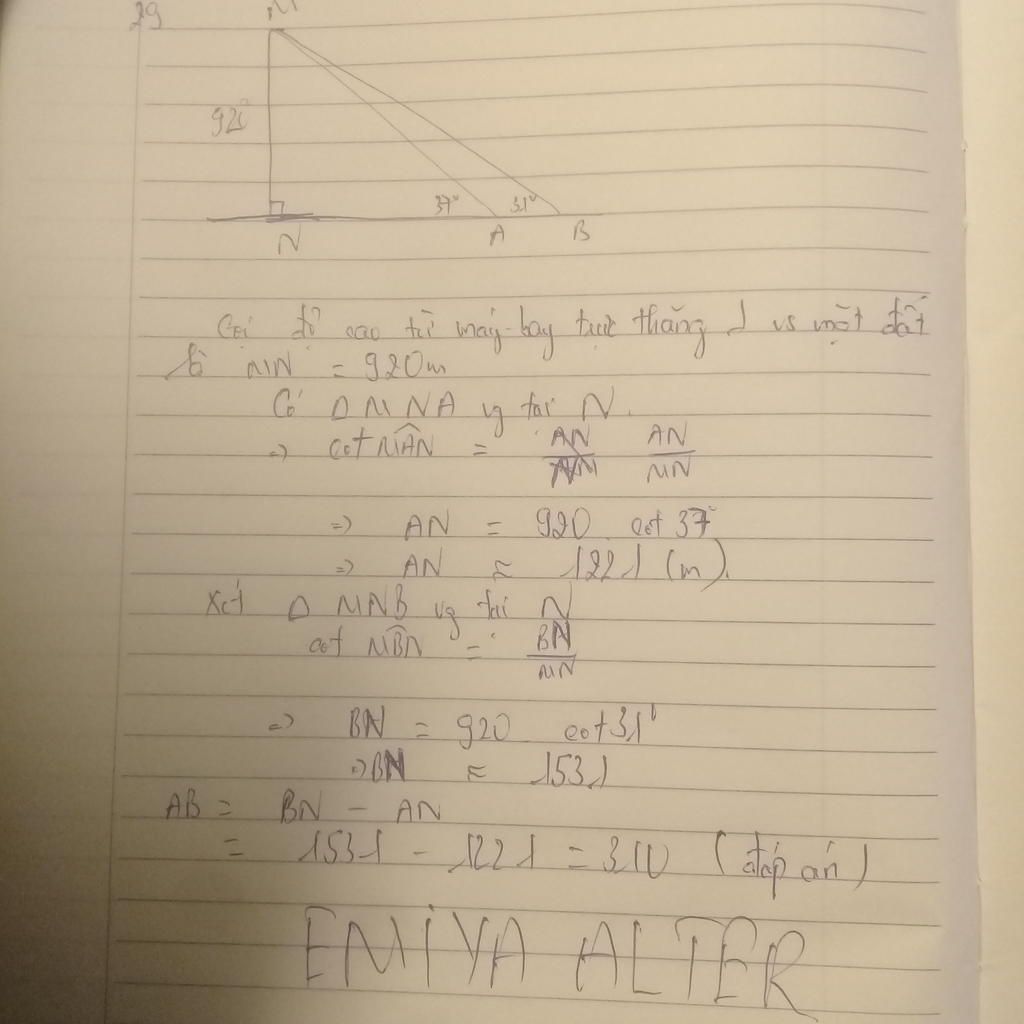 29
M
920
37° 31°
N A B
Gọi độ cao từ máy bay trực thăng ⊥ vs mặt đất
là MN = 920m
Có Δ MNA vg tại N.
=> cot MÂN = AN/NM AN/MN
=> AN = 920 . cot 37°
=> AN ≈ 1221 (m).
Xét Δ MNB vg tại N
cot MB̂N = BN/MN
=> BN = 920 cot 31°
=> BN ≈ 1531
AB = BN - AN
= 1531 - 1221 = 310 (đáp án)
EMIYA ALTER